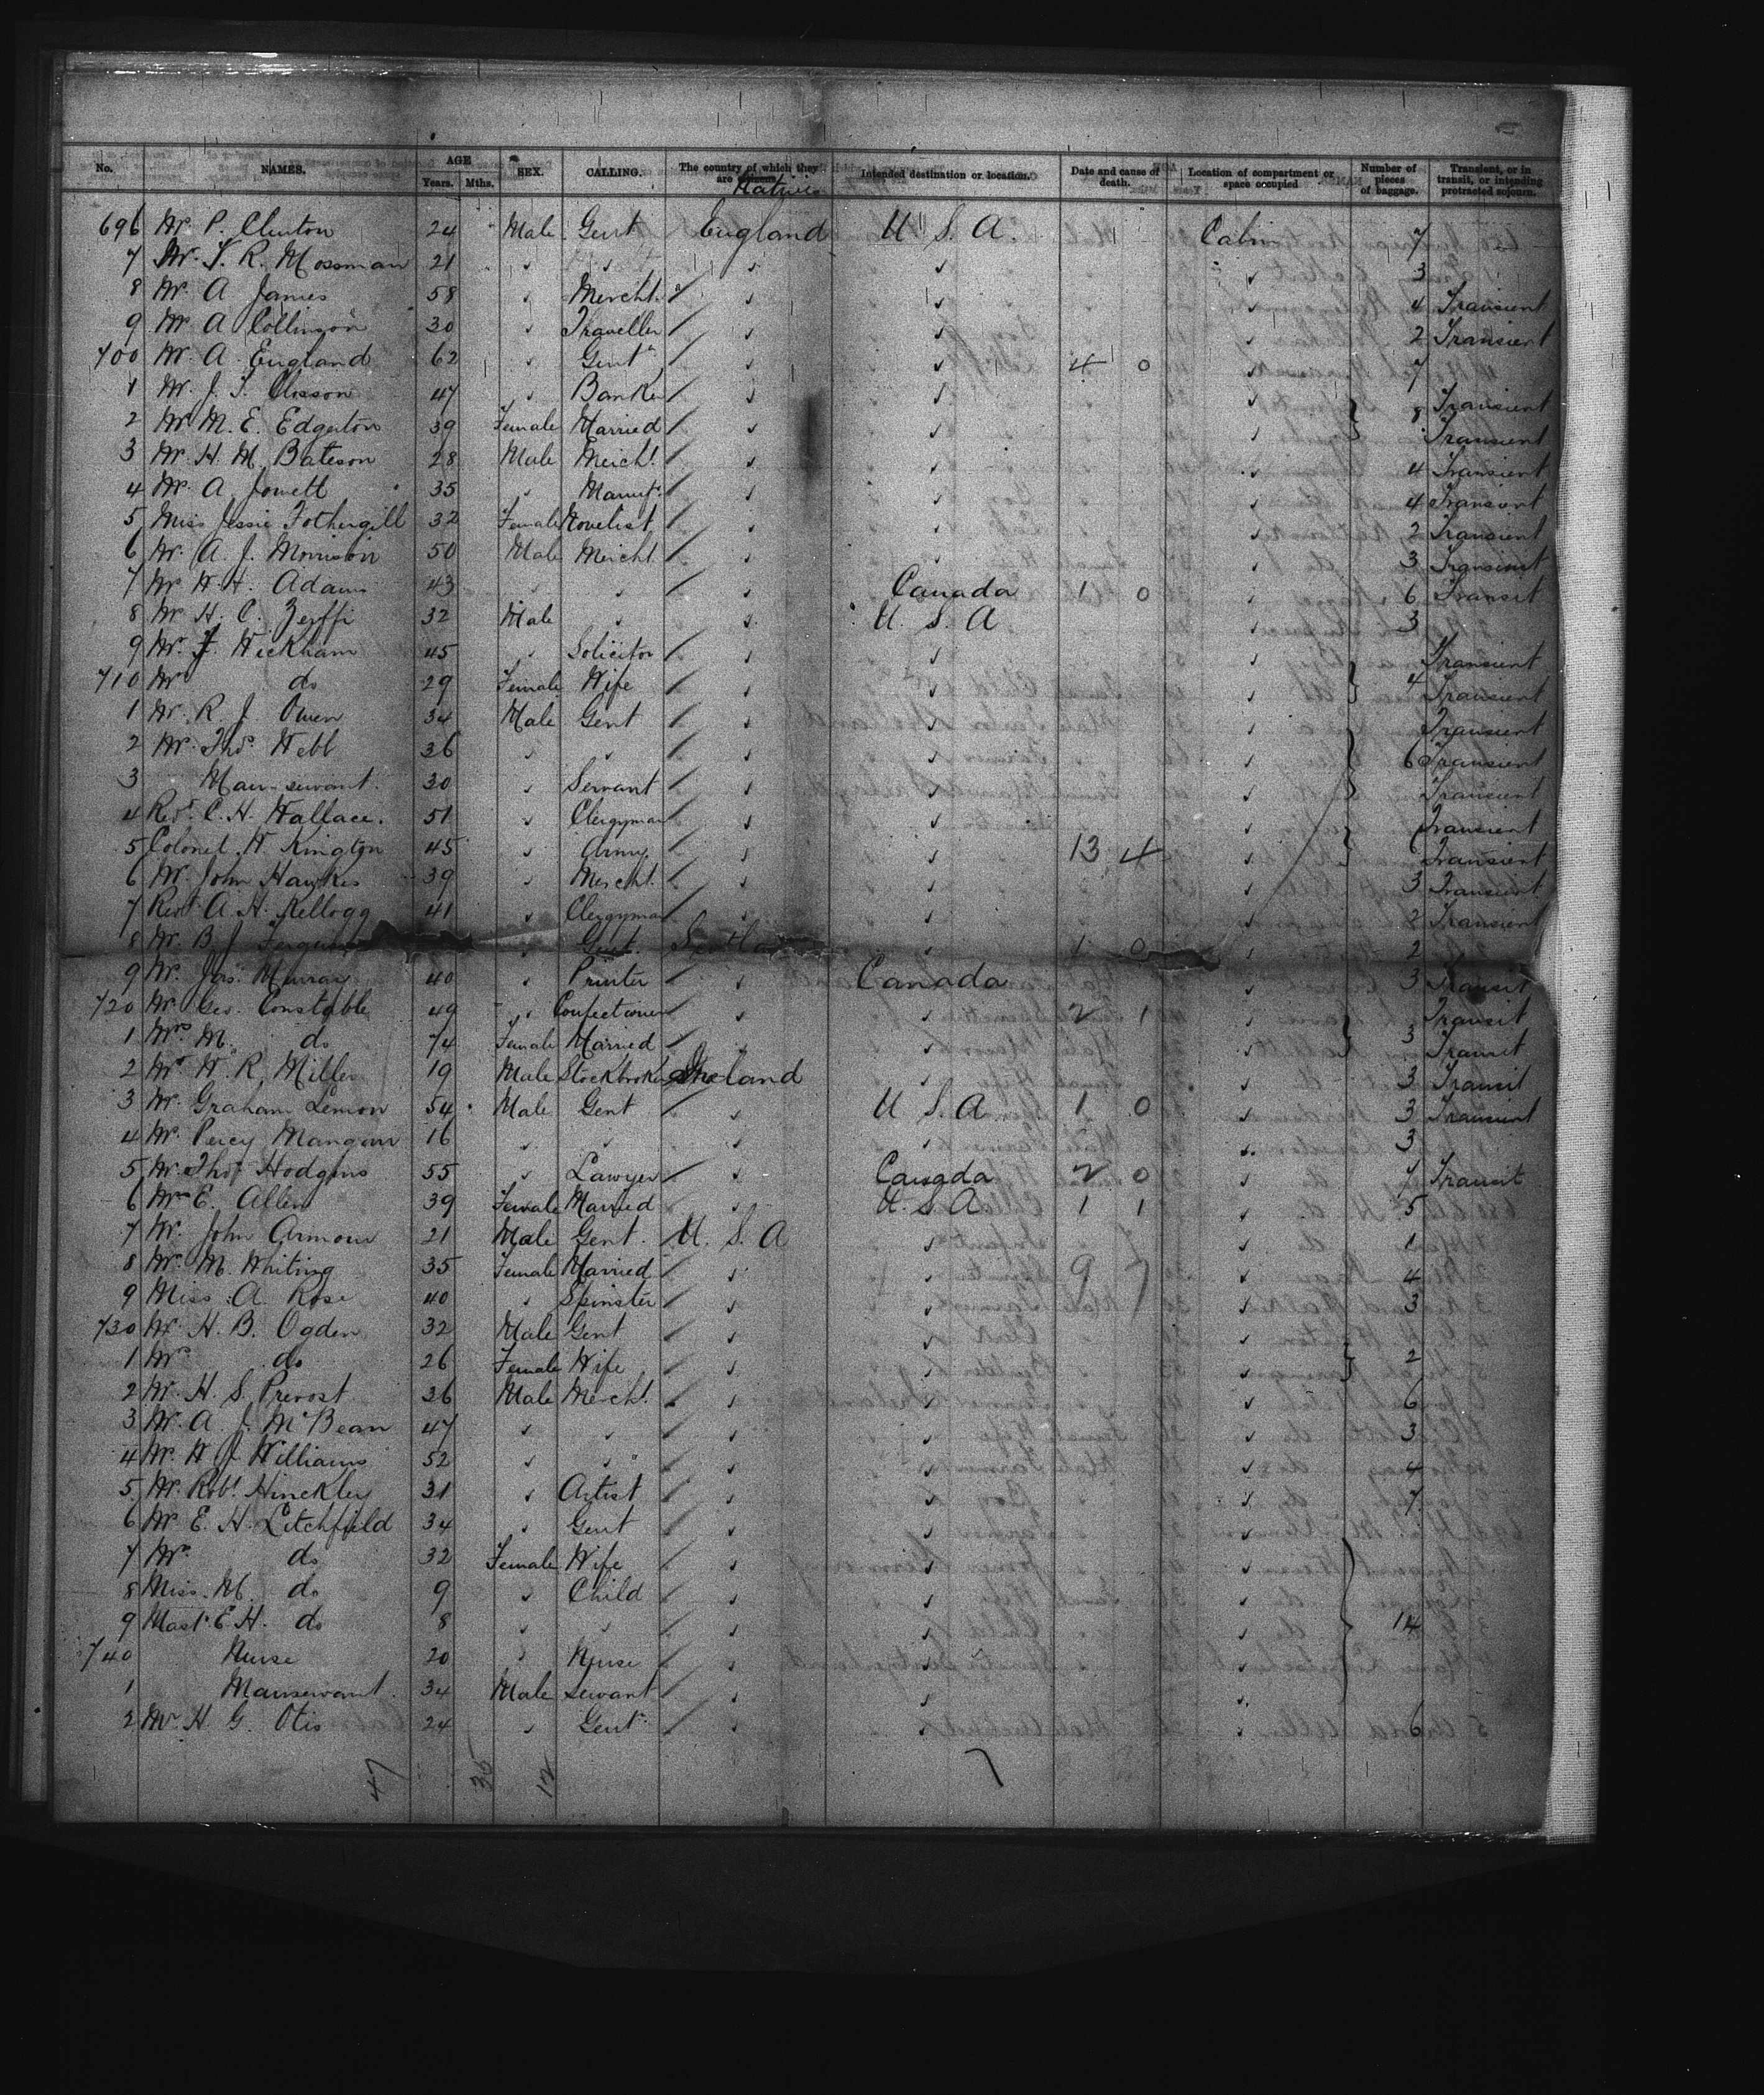 No. NAMES. AGE Years. Mths. SEX. CALLING. The country of which they are Natives Intended destination or location. Date and cause of death. Location of compartment or space occupied Number of pieces of baggage. Transient, or in transit, or intending protracted sojourn.
696 Mr P. Clinton 24 Male Gent England U. S. A. Cabin 7
7 Mr. T. R. Mossman 21 " " " " " 3
8 Mr. A James 58 " Mercht. " " " 4 Transient
9 Mr A Collinson 30 " Traveller " " " 2 Transient
700 Mr. A. England 62 " Gent " " 4 0 " 7
1 Mr. J. T. Closson 47 " Banker " " " Transient
2 Mrs M. E. Edgerton 39 Female Married " " " 8 Transient
3 Mr. H. M. Bateson 28 Male Mercht. " " " 4 Transient
4 Mr. A Jowett 35 " Manuf. " " " 4 Transient
5 Miss Jessie Fothergill 32 Female Novelist " " " 2 Transient
6 Mr. A. J. Morrison 50 Male Mercht " " " 3 Transient
7 Mr W. H. Adams 43 " " " Canada 1 0 " 6 Transit
8 Mr H. C. Zerffi 32 Male " " U. S. A " 3
9 Mr. F. Wickham 45 " Solicitor " " " Transient
710 Mrs do 29 Female Wife " " " 4 Transient
1 Mr. R. J. Owen 34 Male Gent " " " Transient
2 Mr. Thos. Webb 36 " " " " " 6 Transient
3 Man-servant. 30 " Servant " " " Transient
4 Revd. C. H. Wallace. 51 " Clergyman " " " Transient
5 Colonel W. Kington 45 " Army " " 13 4 " 6 Transient
6 Mr. John Hawkes 39 " Mercht. " " " 3 Transient
7 Revd. A. H. Kellogg 41 " Clergyman " " " 2 Transient
8 Mr. B. J. " Gent. " 1 0 " 2
9 Mr. Jas. Murray 40 " Printer " Canada " 3 Transit
720 Mr Geo. Constable 49 " Confectioner " " 2 1 " Transit
1 Mrs M. do 74 Female Married " " " 3 Transit
2 Mr W. R. Miller 19 Male Stockbroker Ireland " " 3 Transit
3 Mr. Graham Lemon 54 Male Gent " U. S. A 1 0 " 3 Transient
4 Mr. Percy Mangan 16 " " " " " 3
5 Mr. Thos. Hodgins 55 " Lawyer " Canada 2 0 " 7 Transit
6 Mrs E. Allen 39 Female Married " U. S. A 1 1 " 5
7 Mr. John Armour 21 Male Gent. U. S. A " " 1
8 Mrs M. Whiting 35 Female Married " " 9 7 " 4
9 Miss. A. Rose 40 " Spinster " " " 3
730 Mr H. B. Ogden 32 Male Gent " " "
1 Mrs do 26 Female Wife " " " 2
2 Mr. H. S. Prevost 26 Male Mercht. " " " 6
3 Mr. A. J. McBean 47 " " " " " 3
4 Mr. W. J. Williams 52 " " " " " 4
5 Mr. Robt. Hinckley 31 " Artist " " " 7
6 Mr E. H. Litchfield 34 " Gent " " "
7 Mrs do 32 Female Wife " " "
8 Miss. M. do 9 " Child " " "
9 Mast. E. H. do 8 " " " " " 14
740 Nurse 20 " Nurse " " "
1 Manservant. 34 Male Servant " " "
2 Mr H. G. Otis 24 " Gent. " " " 6
47 35 12 7